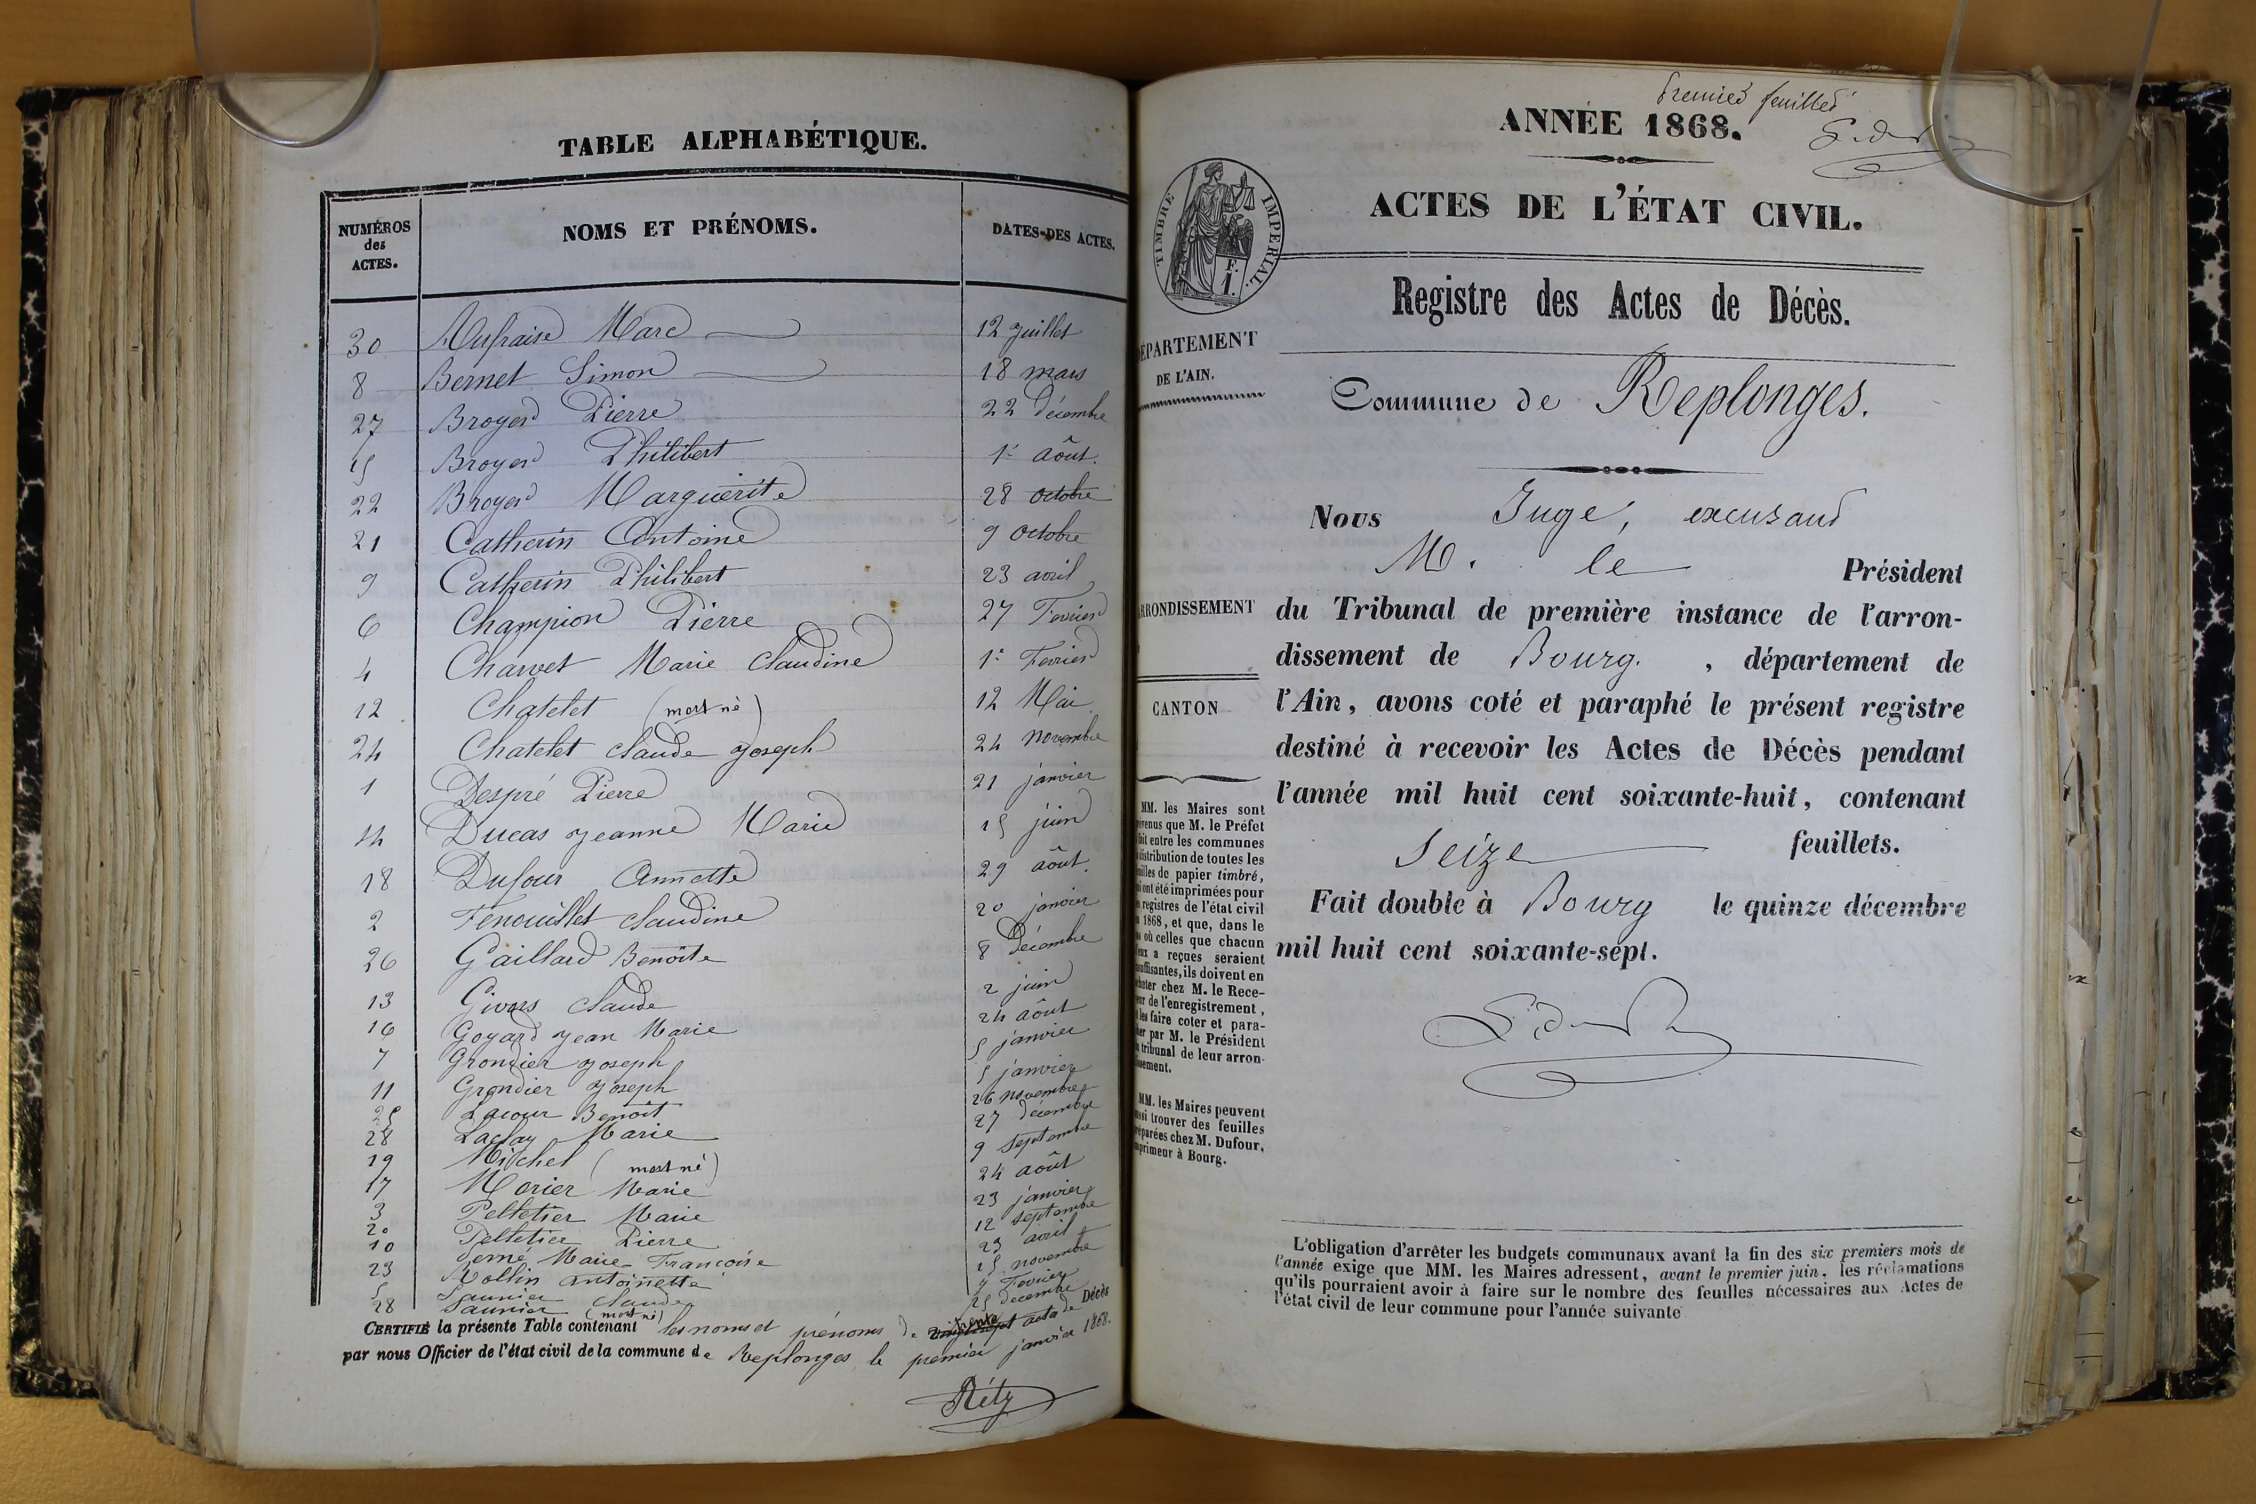 TABLE ALPHABÉTIQUE.
NUMÉROS des ACTES. NOMS ET PRÉNOMS. DATES DES ACTES.
30 Aufraise Marc 12 juillet
8 Bernet Simon 18 mars
27 Broyer Pierre 22 décembre
15 Broyer Philibert 1er août.
22 Broyer Marguerite 28 octobre
21 Catherin Antoine 9 octobre
9 Catherin Philibert 23 avril
6 Champion Pierre 27 Fevrier
4 Charvet Marie Claudine 1er Fevrier
12 Chatelet (mort né) 12 Mai
24 Chatelet Claude Joseph 24 novembre
1 Despré Pierre 21 janvier
14 Ducas Jeanne Marie 15 juin
18 Dufour Annette 29 août.
2 Fenouillet Claudine 20 janvier
26 Gaillard Benoîte 8 décembre
13 Givors Claude 2 juin
16 Goyard Jean Marie 24 août
7 Grondier Joseph 5 janvier
11 Grondier Joseph 5 janvier
25 Lacour Benoît 26 novembre
28 Laclay Marie 27 décembre
19 Michel (mort né) 9 septembre
17 Morier Marie 24 août
3 Pelletier Marie 23 janvier
20 Pelletier Pierre 12 septembre
10 Marie Françoise 23 avril
23 Rollin antoinette 15 novembre
5 Saunier Claude Fevrier
28 Saunier (mort né) 25 décembre
CERTIFIÉ la présente Table contenant les noms et prénoms de vingt sept trente acte de Décès
par nous Officier de l'état civil de la commune de Replonges le premier janvier 1868.
Réty
Premier feuillet
ANNÉE 1868.
ACTES DE L'ÉTAT CIVIL.
TIMBRE IMPERIAL.
F.
1.
Registre des Actes de Décès.
DÉPARTEMENT
DE L'AIN.
Commune de Replonges.
Nous Juge, excusant
M. le Président
ARRONDISSEMENT
du Tribunal de première instance de l'arron-
dissement de Bourg. , département de
CANTON
l'Ain, avons coté et paraphé le présent registre
destiné à recevoir les Actes de Décès pendant
l'année mil huit cent soixante-huit, contenant
Seize feuillets.
Fait double à Bourg le quinze décembre
mil huit cent soixante-sept.
MM. les Maires sont
prévenus que M. le Préfet
fait entre les communes
distribution de toutes les
feuilles de papier timbré,
qui ont été imprimées pour
registres de l'état civil
1868, et que, dans le
cas où celles que chacun
d'eux a reçues seraient
insuffisantes, ils doivent en
acheter chez M. le Rece-
veur de l'enregistrement,
les faire coter et para-
pher par M. le Président
du tribunal de leur arron-
dissement.
MM. les Maires peuvent
aussi trouver des feuilles
préparées chez M. Dufour,
imprimeur à Bourg.
L'obligation d'arrêter les budgets communaux avant la fin des six premiers mois de
l'année exige que MM. les Maires adressent, avant le premier juin, les réclamations
qu'ils pourraient avoir à faire sur le nombre des feuilles nécessaires aux Actes de
l'état civil de leur commune pour l'année suivante